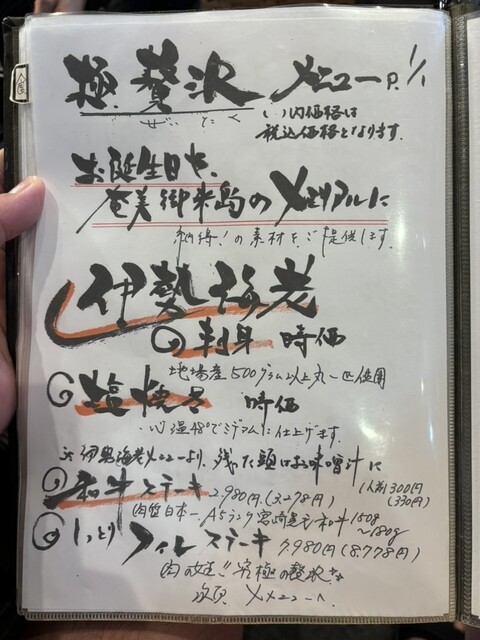 極 贅沢 メニュー P. 1/1
ぜいたく
( )内価格は
税込価格となります.
お誕生日や、
奄美御来島のメモリアルに
納得!の素材をご提供します.
伊勢海老
刺身 時価
地場産500グラム以上丸一匹使用
塩焼き 時価
心温48°でミディアムに仕上げます.
※伊勢海老メニューより、残った頭はお味噌汁に
1人前300円
(330円)
和牛ステーキ 2.980円(3.278円)
肉質日本一A5ランク宮崎黒毛和牛150g
〜180g
しっとり フィレステーキ 7.980円(8.778円)
究極の贅沢な
次頁 〆メニューへ